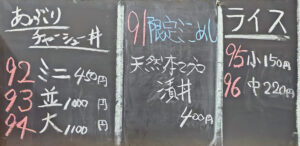 あぶり
チャーシュー丼
92 ミニ 450円
93 並 1000円
94 大 1100円
91 限定ごめし
天然本マグロ
漬丼
400円
ライス
95 小 150円
96 中 220円